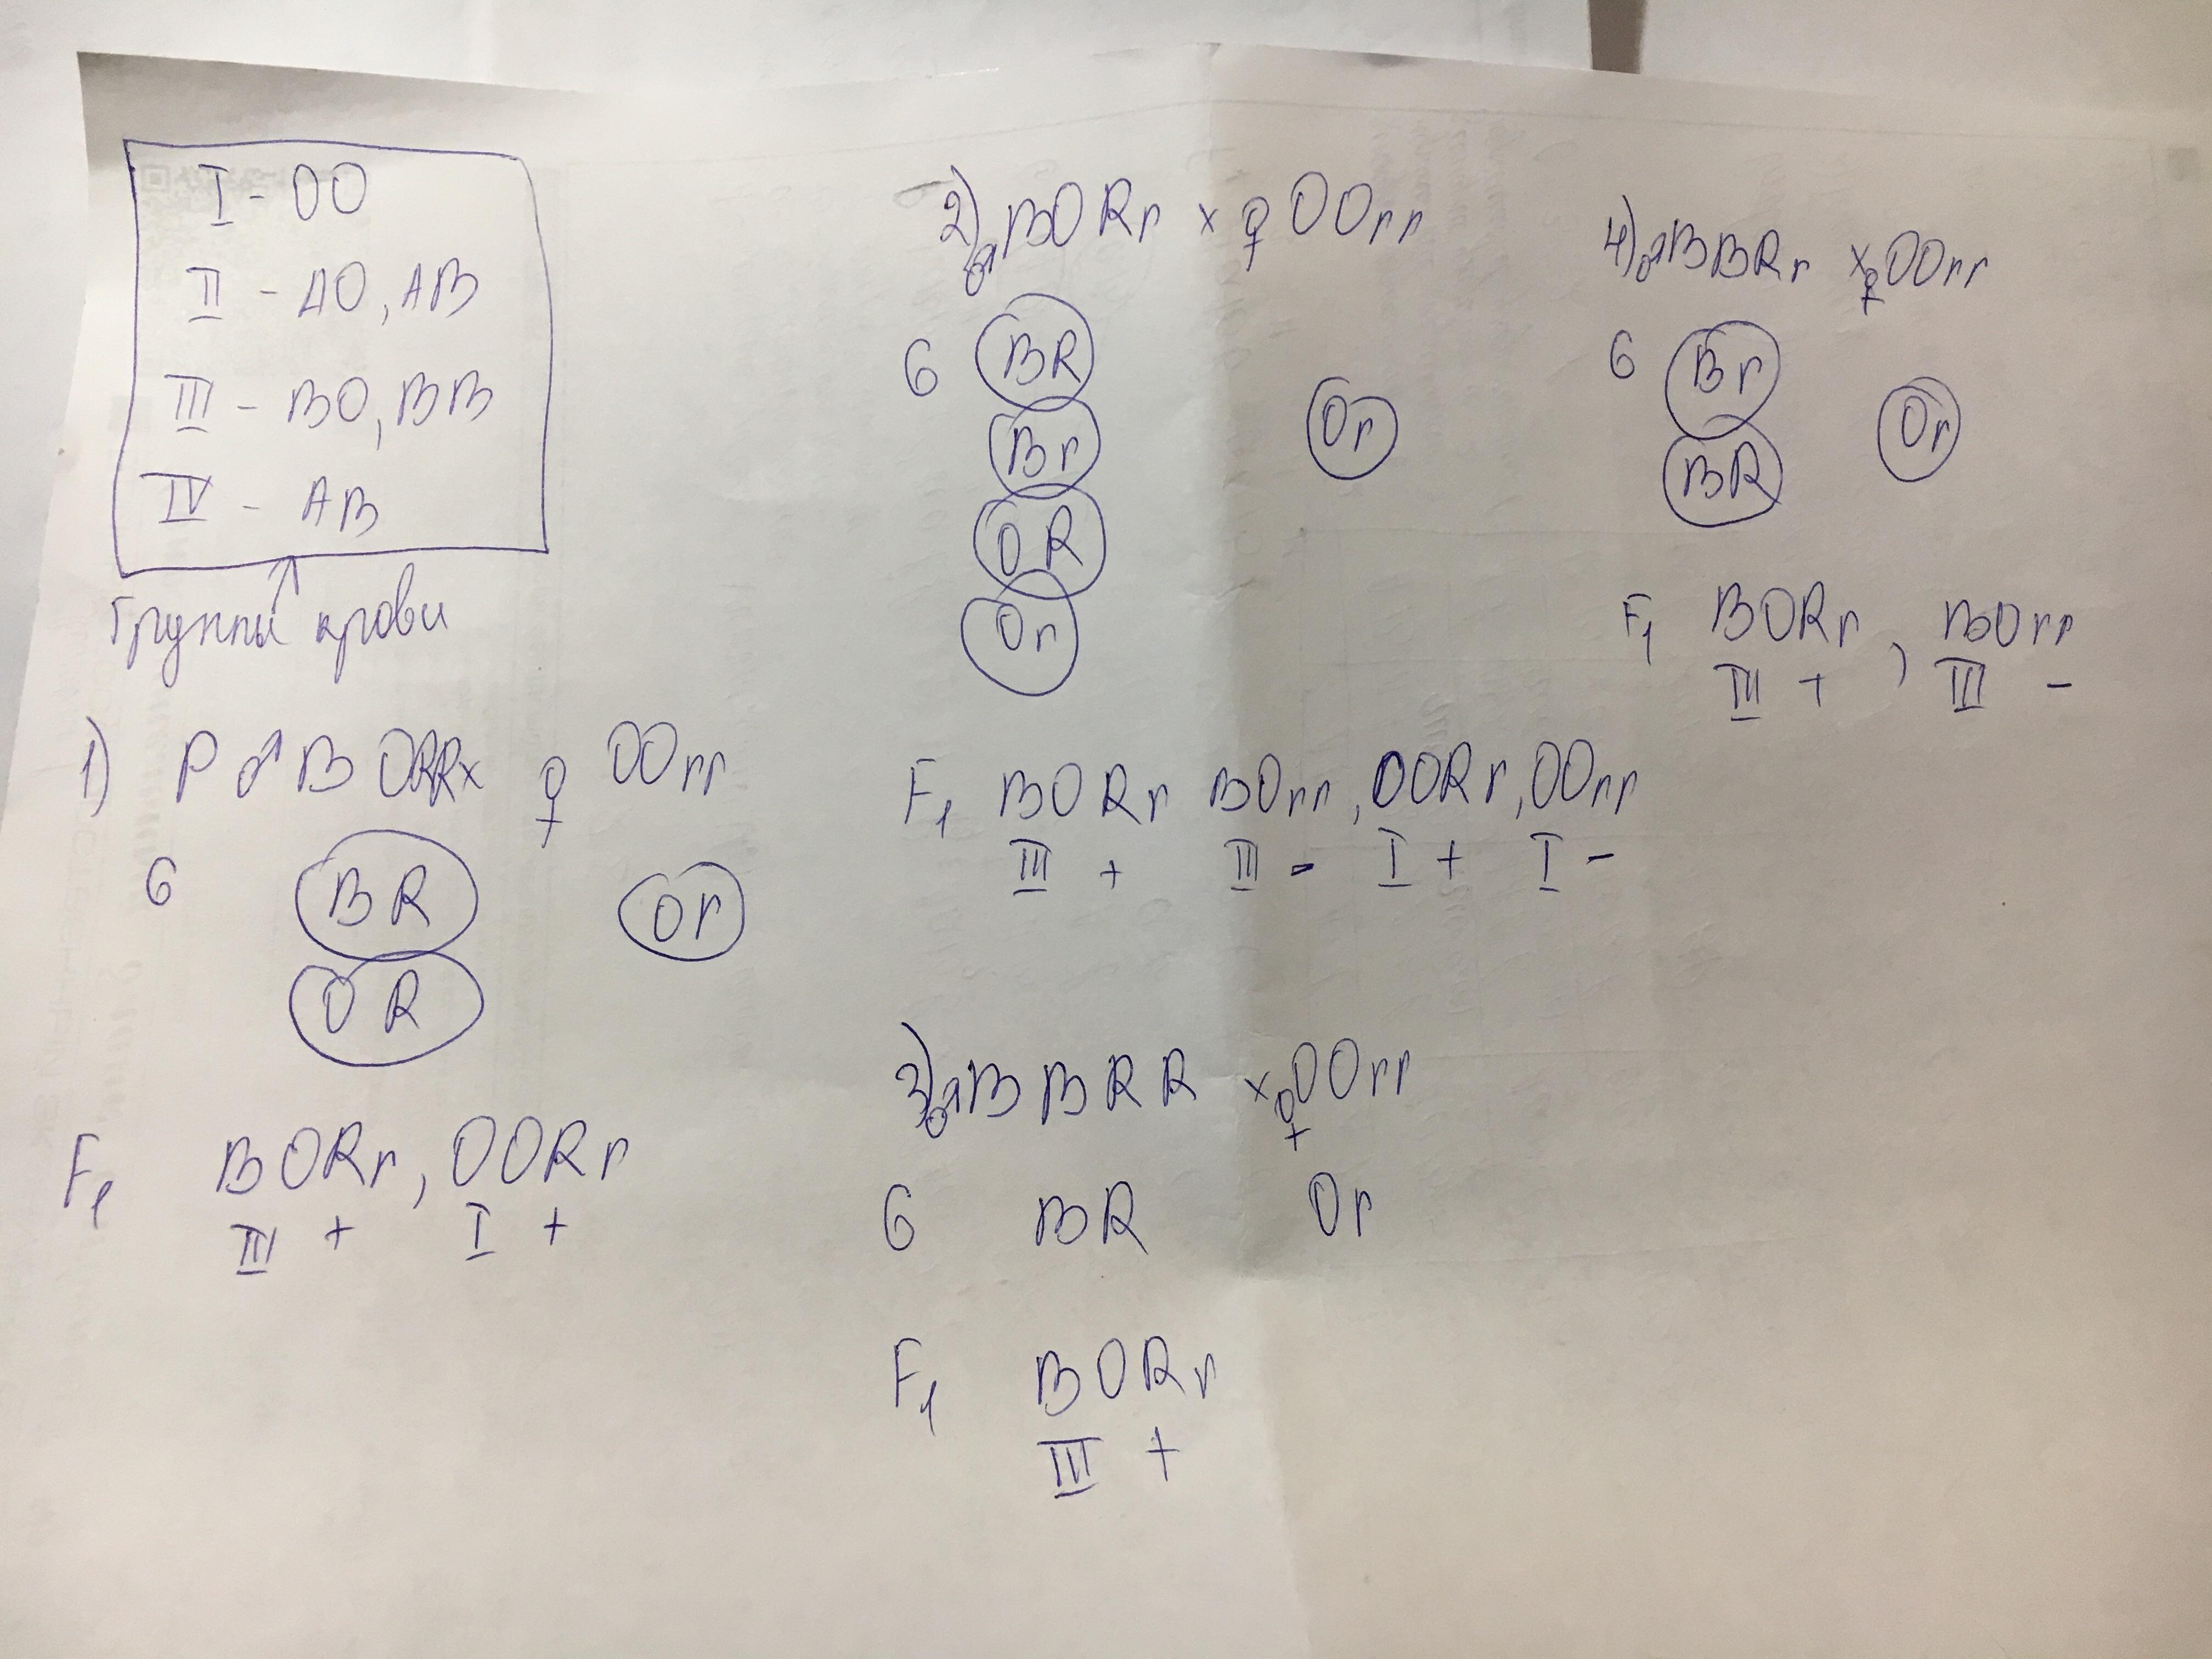 I - OO
II - AO, AB
III - BO, BB
IV - AB
Группы крови
1) P ♂ B ORR x ♀ OOrr
G BR Or
OR
F1 BORr, OORr
III + I +
2) ♂ BORr x ♀ OOrr
G BR
Br Or
OR
Or
F1 BORr BOrr, OORr, OOrr
III + III - I + I -
3) ♂ BBRR x ♀ OOrr
G BR Or
F1 BORr
III +
4) ♂ BBRr x ♀ OOrr
G Br Or
BR
F1 BORr, BOrr
III + III -